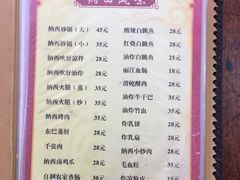 纳西风味
纳西砂锅（大） 45元
纳西砂锅（小） 35元
纳西吹肝凉拌 28元
纳西吹肝油炸 28元
纳西火腿（蒸） 35元
纳西火腿（炒） 35元
纳西烤肉 35元
东巴蒸肘
千张肉 28元
纳西卤鸡爪 28元
自制农家香肠 30元
酸辣白跳鱼 28元
红烧白跳鱼 28元
油炸白跳鱼 28元
丽江血肠 18元
清炖酥肉 28元
油炸牛干巴 35元
油炸竹虫 35元
炸乳饼 30元
炸乳扇 28元
纳西小炒肉 28元
毛血旺 35元
炸凉粉皮 15元